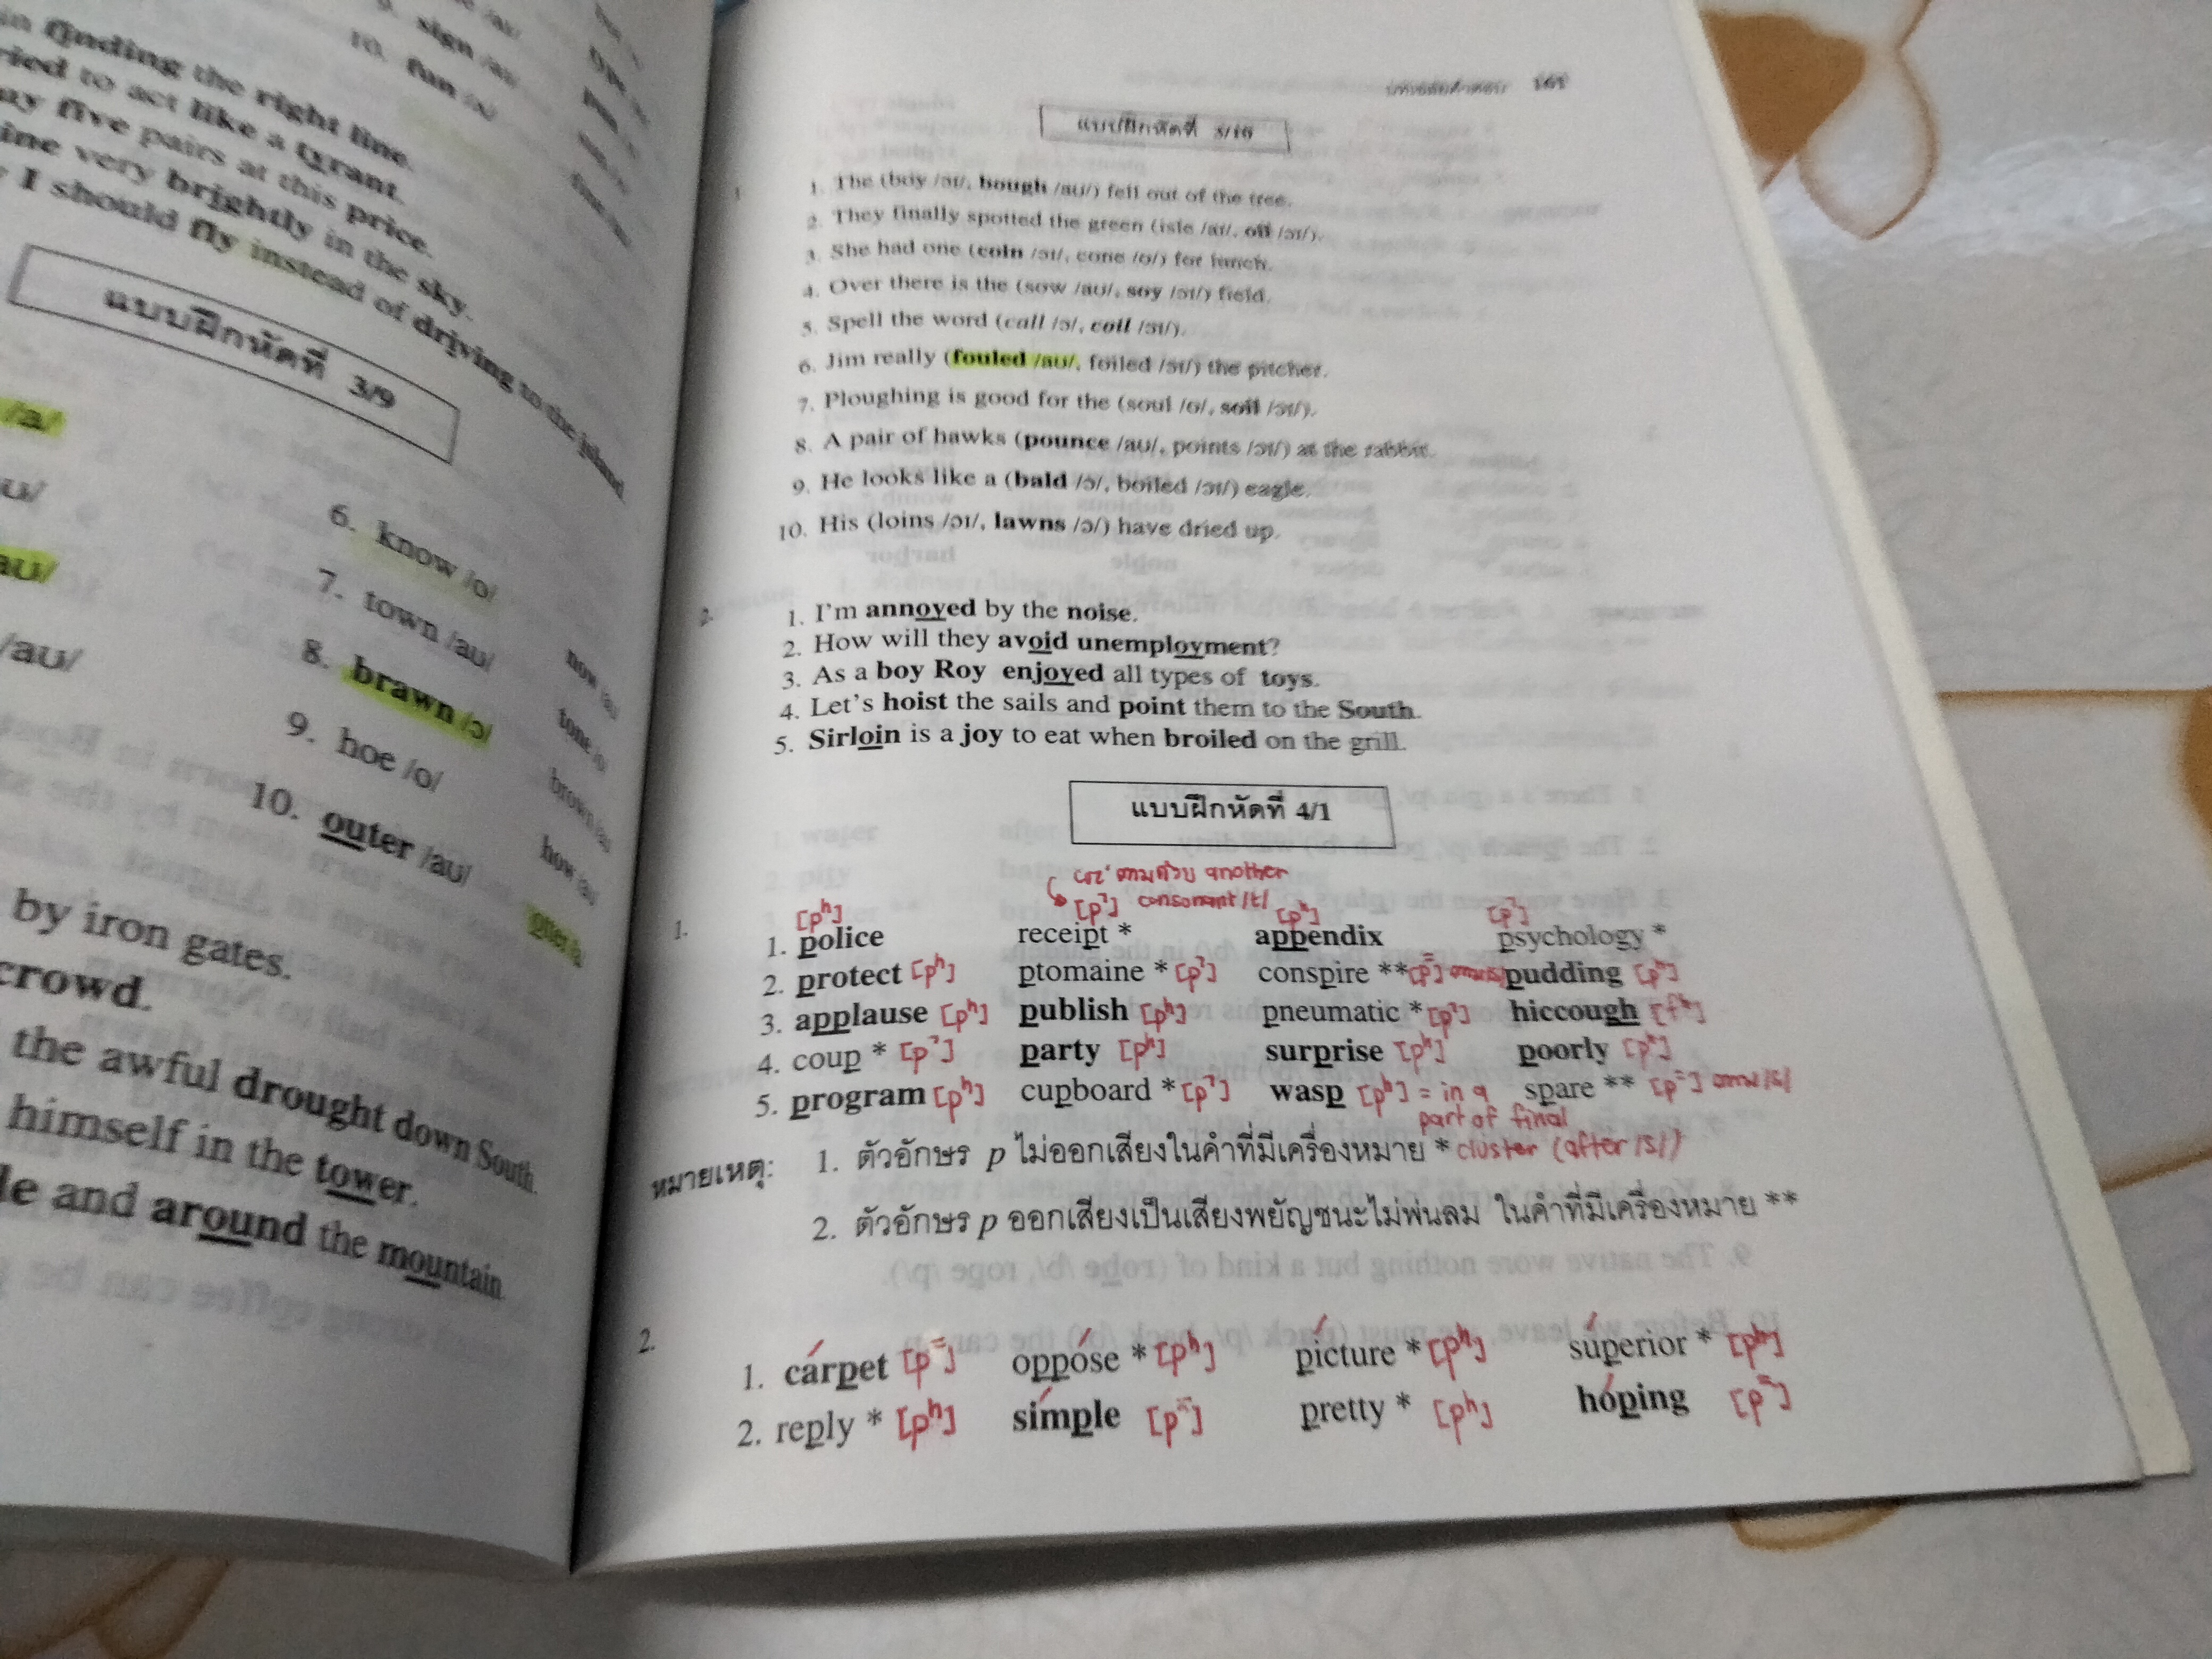 sign
10. fun
finding the right line.
ried to act like a tyrant.
ay five pairs at this price.
ine very brightly in the sky.
I should fly instead of driving to the island
แบบฝึกหัดที่ 3/9
/a/
/aʊ/
6. know /o/
7. town /aʊ/
8. brawn /ɔ/
9. hoe /o/
10. outer /aʊ/
now
tone /o
brown
how
by iron gates.
crowd.
the awful drought down South.
himself in the tower.
le and around the mountain
แบบฝึกหัดที่ 3/10
1. The (boy /ɔɪ/, bough /aʊ/) fell out of the tree.
2. They finally spotted the green (isle /aɪ/, oil /ɔɪ/).
3. She had one (coin /ɔɪ/, cone /o/) for lunch.
4. Over there is the (sow /aʊ/, soy /ɔɪ/) field.
5. Spell the word (call /ɔ/, coil /ɔɪ/).
6. Jim really (fouled /aʊ/, foiled /ɔɪ/) the pitcher.
7. Ploughing is good for the (soul /o/, soil /ɔɪ/).
8. A pair of hawks (pounce /aʊ/, points /ɔɪ/) at the rabbit.
9. He looks like a (bald /ɔ/, boiled /ɔɪ/) eagle.
10. His (loins /ɔɪ/, lawns /ɔ/) have dried up.
2.
1. I'm annoyed by the noise.
2. How will they avoid unemployment?
3. As a boy Roy enjoyed all types of toys.
4. Let's hoist the sails and point them to the South.
5. Sirloin is a joy to eat when broiled on the grill.
แบบฝึกหัดที่ 4/1
เพราะตามด้วย another
[pʰ] [p̚] consonant /t/ [pʰ] [p̚]
1. 1. police receipt * appendix psychology *
2. protect [pʰ] ptomaine * [p̚] conspire ** [p⁼] pudding [pʰ]
3. applause [pʰ] publish [pʰ] pneumatic * [p̚] hiccough [pʰ]
4. coup * [p̚] party [pʰ] surprise [pʰ] poorly [pʰ]
5. program [pʰ] cupboard * [p̚] wasp [pʰ] = in a spare ** [p⁼] ตาม /s/
part of final
หมายเหตุ: 1. ตัวอักษร p ไม่ออกเสียงในคำที่มีเครื่องหมาย * cluster (after /s/)
2. ตัวอักษร p ออกเสียงเป็นเสียงพยัญชนะไม่พ่นลม ในคำที่มีเครื่องหมาย **
2.
1. cárpet [p⁼] oppóse * [pʰ] pícture * [pʰ] súperior * [pʰ]
2. reply * [pʰ] símple [p⁼] pretty * [pʰ] hóping [p⁼]